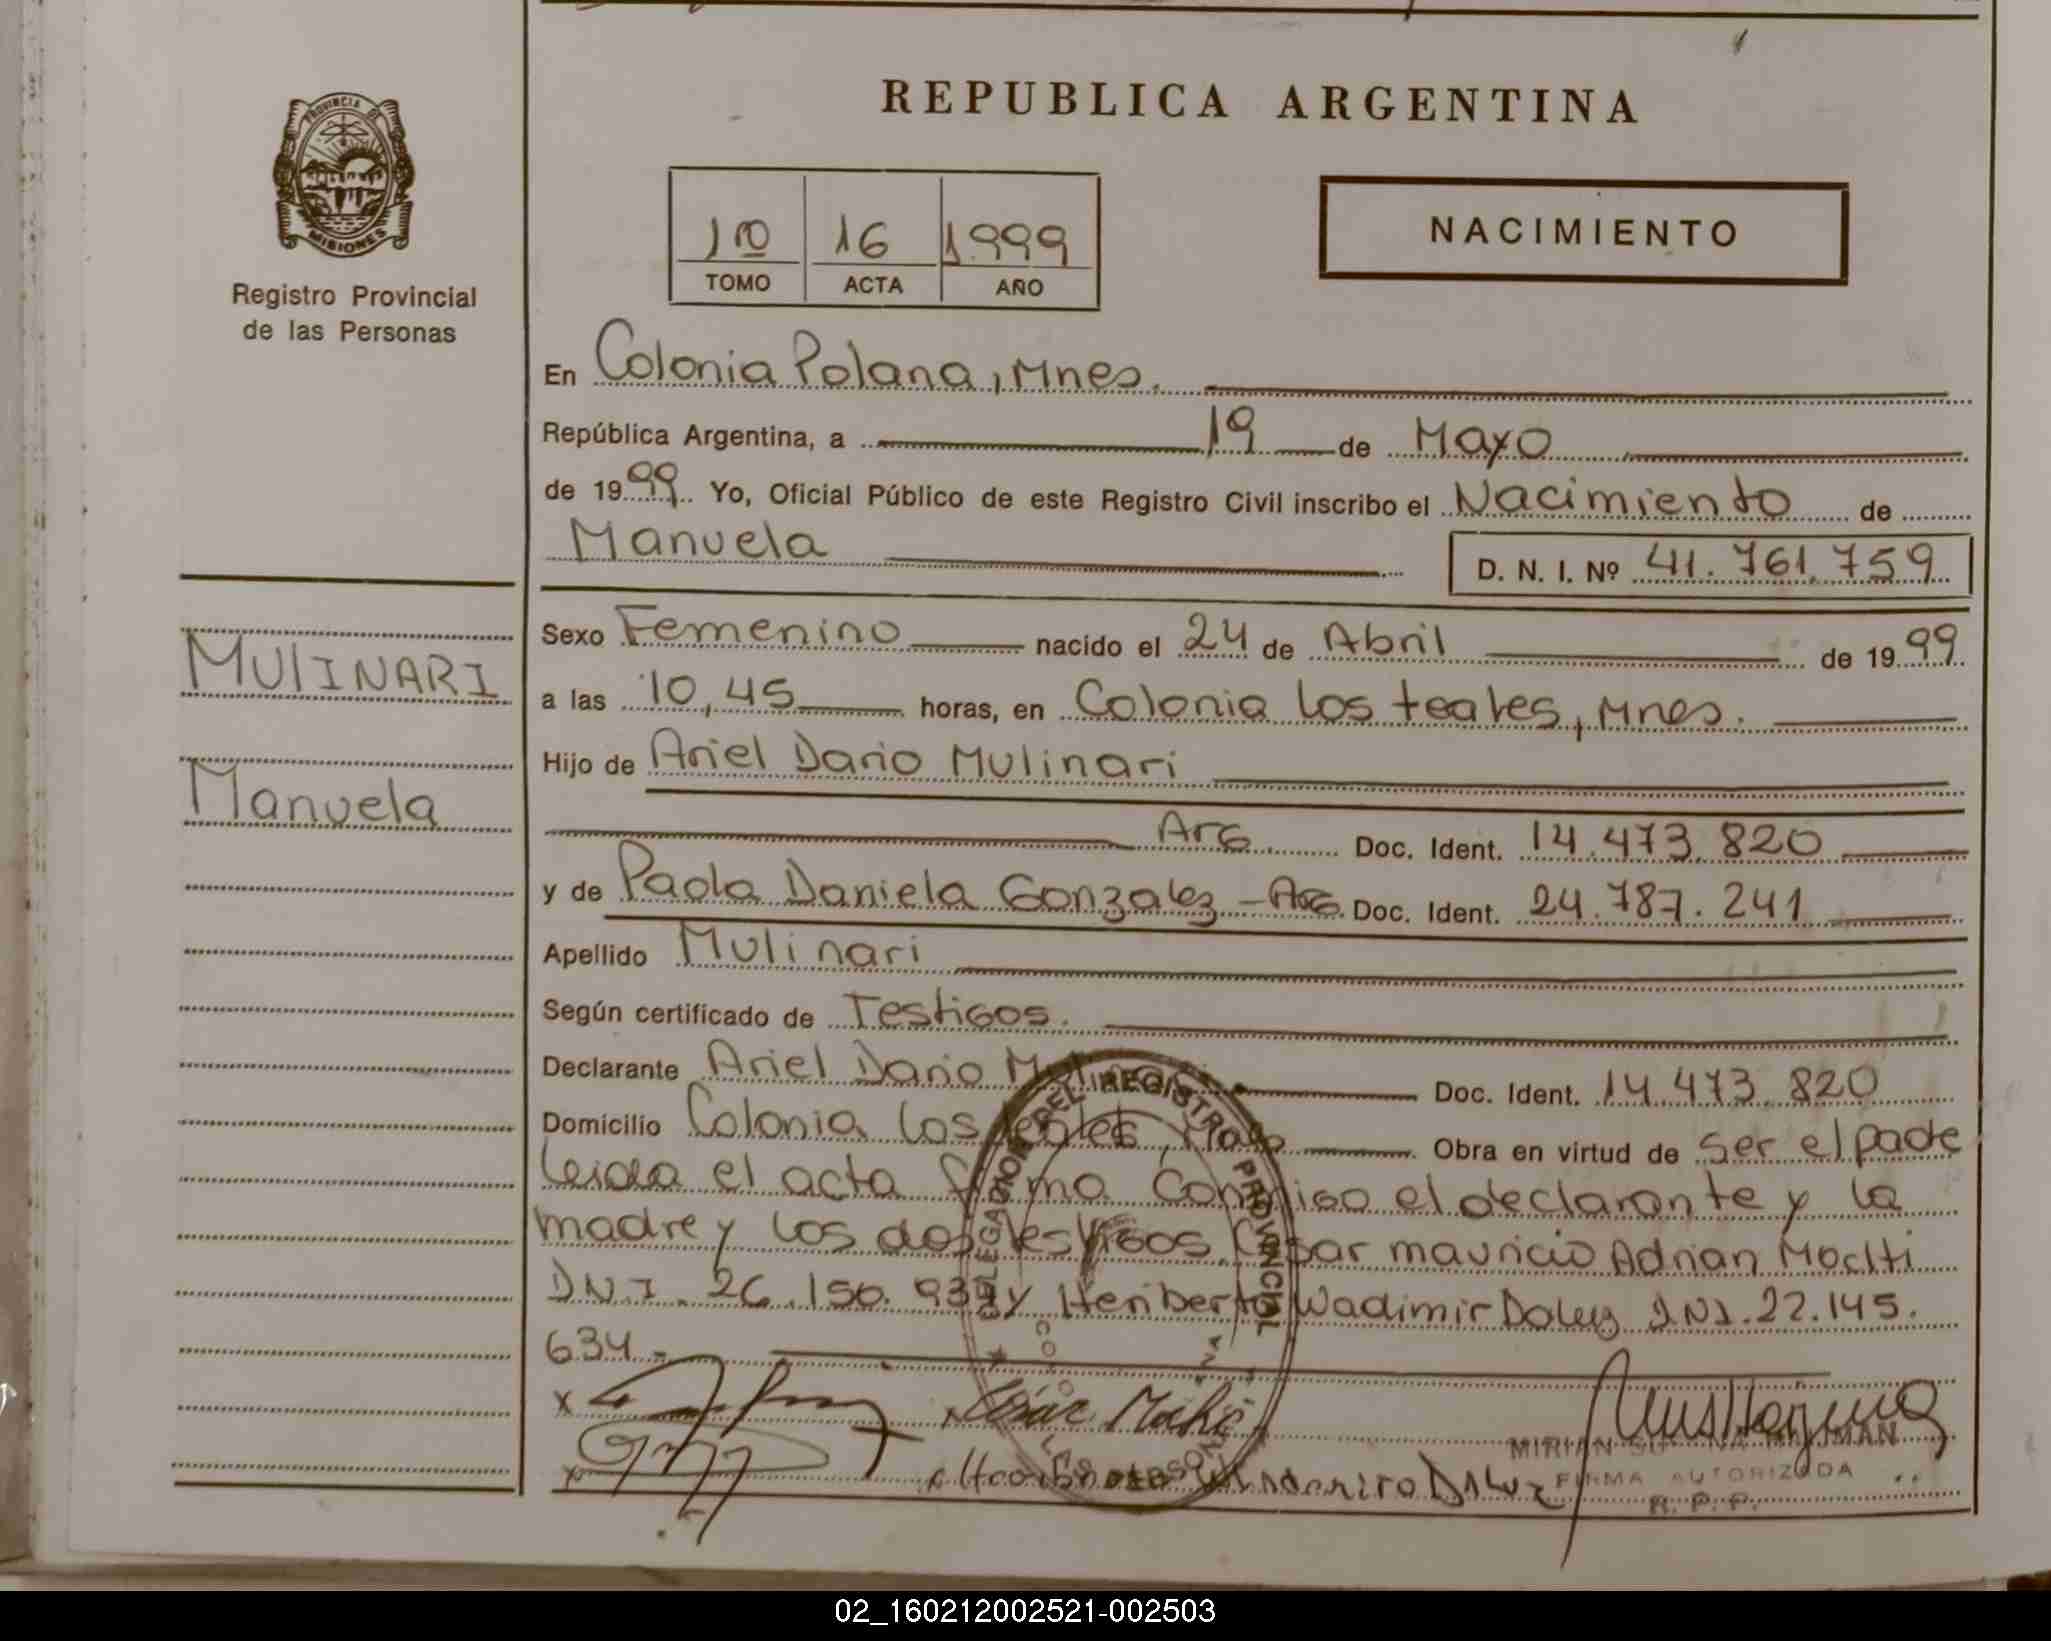 REPUBLICA ARGENTINA
PROVINCIA DE
MISIONES
Registro Provincial
de las Personas
1ro 16 1.999
TOMO ACTA AÑO
NACIMIENTO
En Colonia Polana, Mnes.
República Argentina, a 19 de Mayo
de 1999 Yo, Oficial Público de este Registro Civil inscribo el Nacimiento de
Manuela D. N. I. Nº 41.761.759
MULINARI
Manuela
Sexo Femenino nacido el 24 de Abril de 1999
a las 10,45 horas, en Colonia Los teales, Mnes.
Hijo de Ariel Dario Mulinari
Arg. Doc. Ident. 14.473.820
y de Paola Daniela Gonzalez - Arg. Doc. Ident. 24.787.241
Apellido Mulinari
Según certificado de Testigos.
Declarante Ariel Dario Mulinari Doc. Ident. 14.473.820
Domicilio Colonia Los teales, Obra en virtud de ser el padre
leida el acta firma conmigo el declarante y la
madre y los dos testigos, Cesar mauricio Adrian
DNI. 26.150.934 y Heriberto Wadimir DNI. 22.145.
634.-
DELEGACION DEL REGISTRO PROVINCIAL
DE LAS PERSONAS
FIRMA AUTORIZADA
R. P. P.
02_160212002521-002503